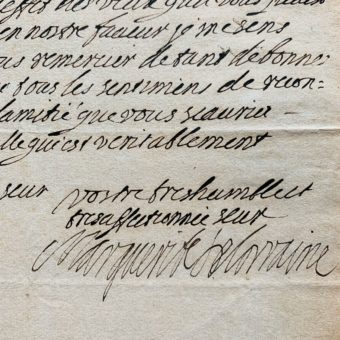 effet des vœux que vous faites
en nostre faueur je me sens
us remercier de tant de bonne
e tous les sentimens de recon=
lamitié que vous scauriez
lle qui est veritablement
seur vostre treshumble et
tresaffectionnée seur
Marguerite de Lorraine